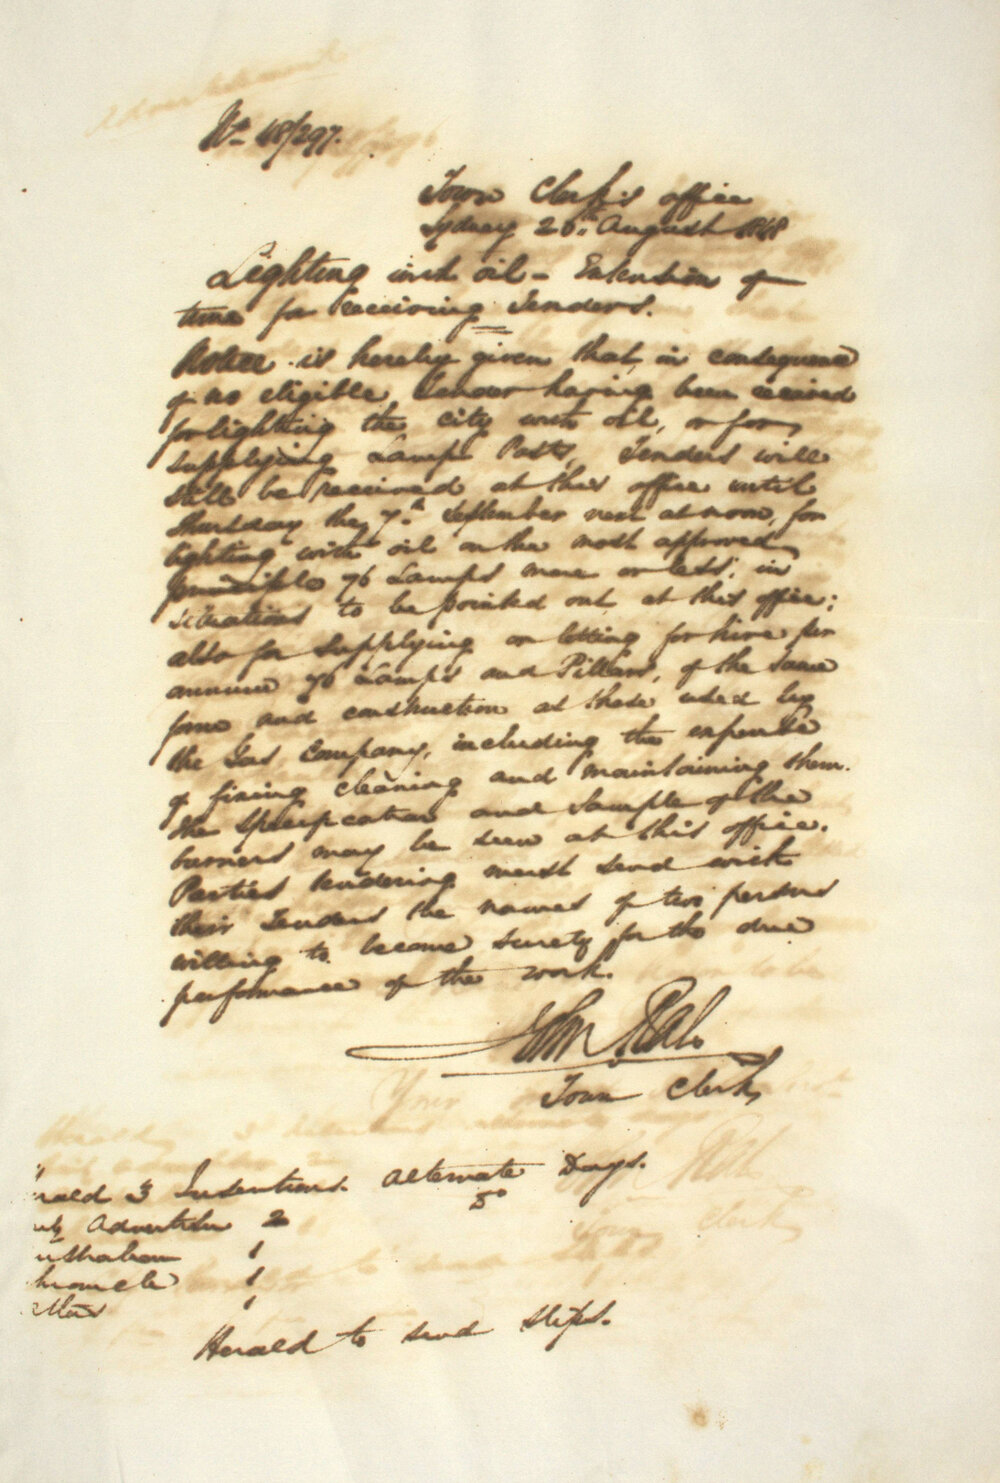 No 48/297.
Town Clerk's office
Sydney 26th August 1848
Lighting with oil - Extension of
time for receiving Tenders.
Notice is hereby given that, in consequence
of no eligible Tender having been received
for lighting the City with oil, or for
supplying Lamp Posts, Tenders will
still be received at this office until
Thursday the 7th September next at noon, for
lighting with oil on the most approved
principle 76 Lamps more or less, in
situations to be pointed out at this office;
also for supplying or letting for hire per
annum 76 Lamps and Pillars, of the same
form and construction as those used by
the Gas Company, including the expense
of fixing cleaning and maintaining them.
The Specification and Sample of the
burners may be seen at this office.
Parties tendering must send with
their Tenders the names of two persons
willing to become surety for the due
performance of the work.
John Rae
Town Clerk
rald 3 Insertions. Alternate Days.
Advertiser 2 Do
ustralian 1
hronicle 1
1
Herald to send slips.